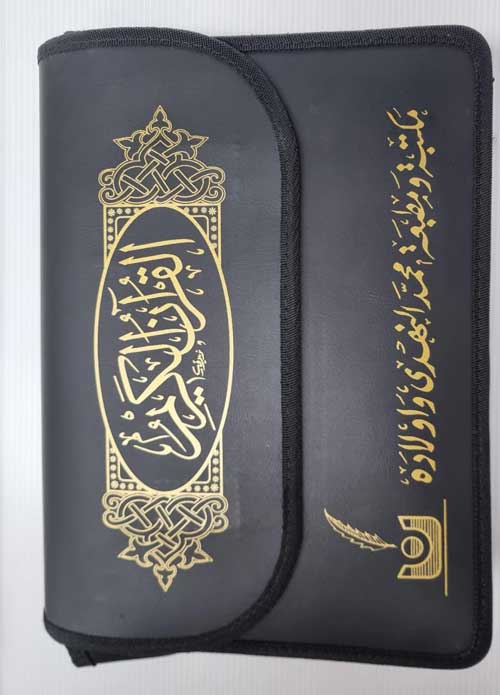 القرآن الكريم
مكتبة ومطبعة محمد النهدي واولاده